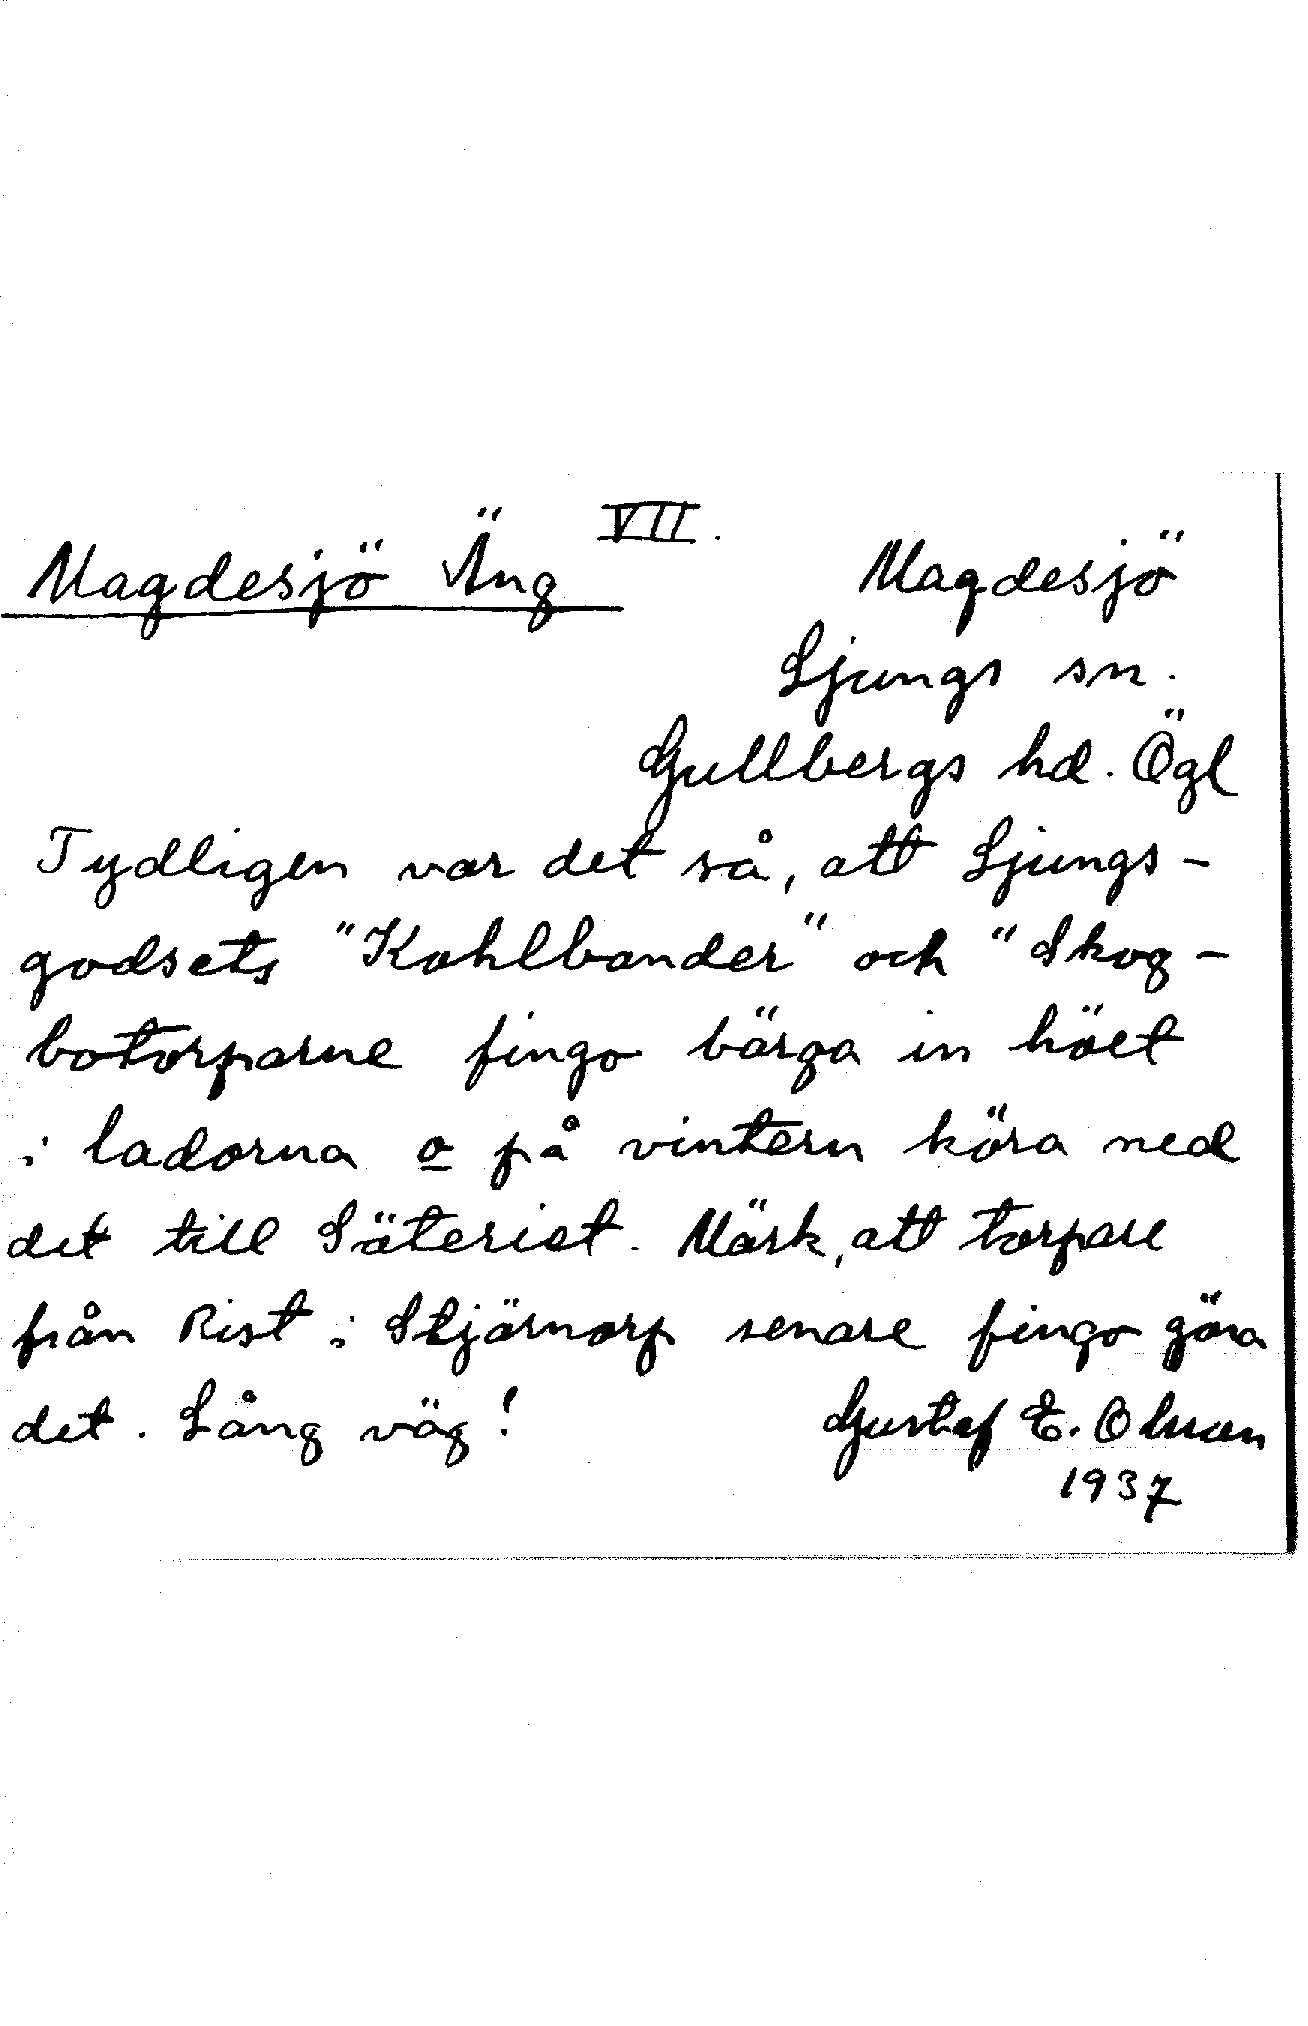 VII.
Magdesjö Äng
Magdesjö
Ljungs sn.
Gullbergs hd. Ögl
Tydligen var det så, att Ljungs-
godsets "Kohlbonder" och "Skog-
botorparne fingo bärga in höet
i ladorna o på vintern köra ned
det till Säteriet. Märk, att torpare
från Rist i Stjärnorp senare fingo göra
det. Lång väg!
Gustaf E. Olsson
1937